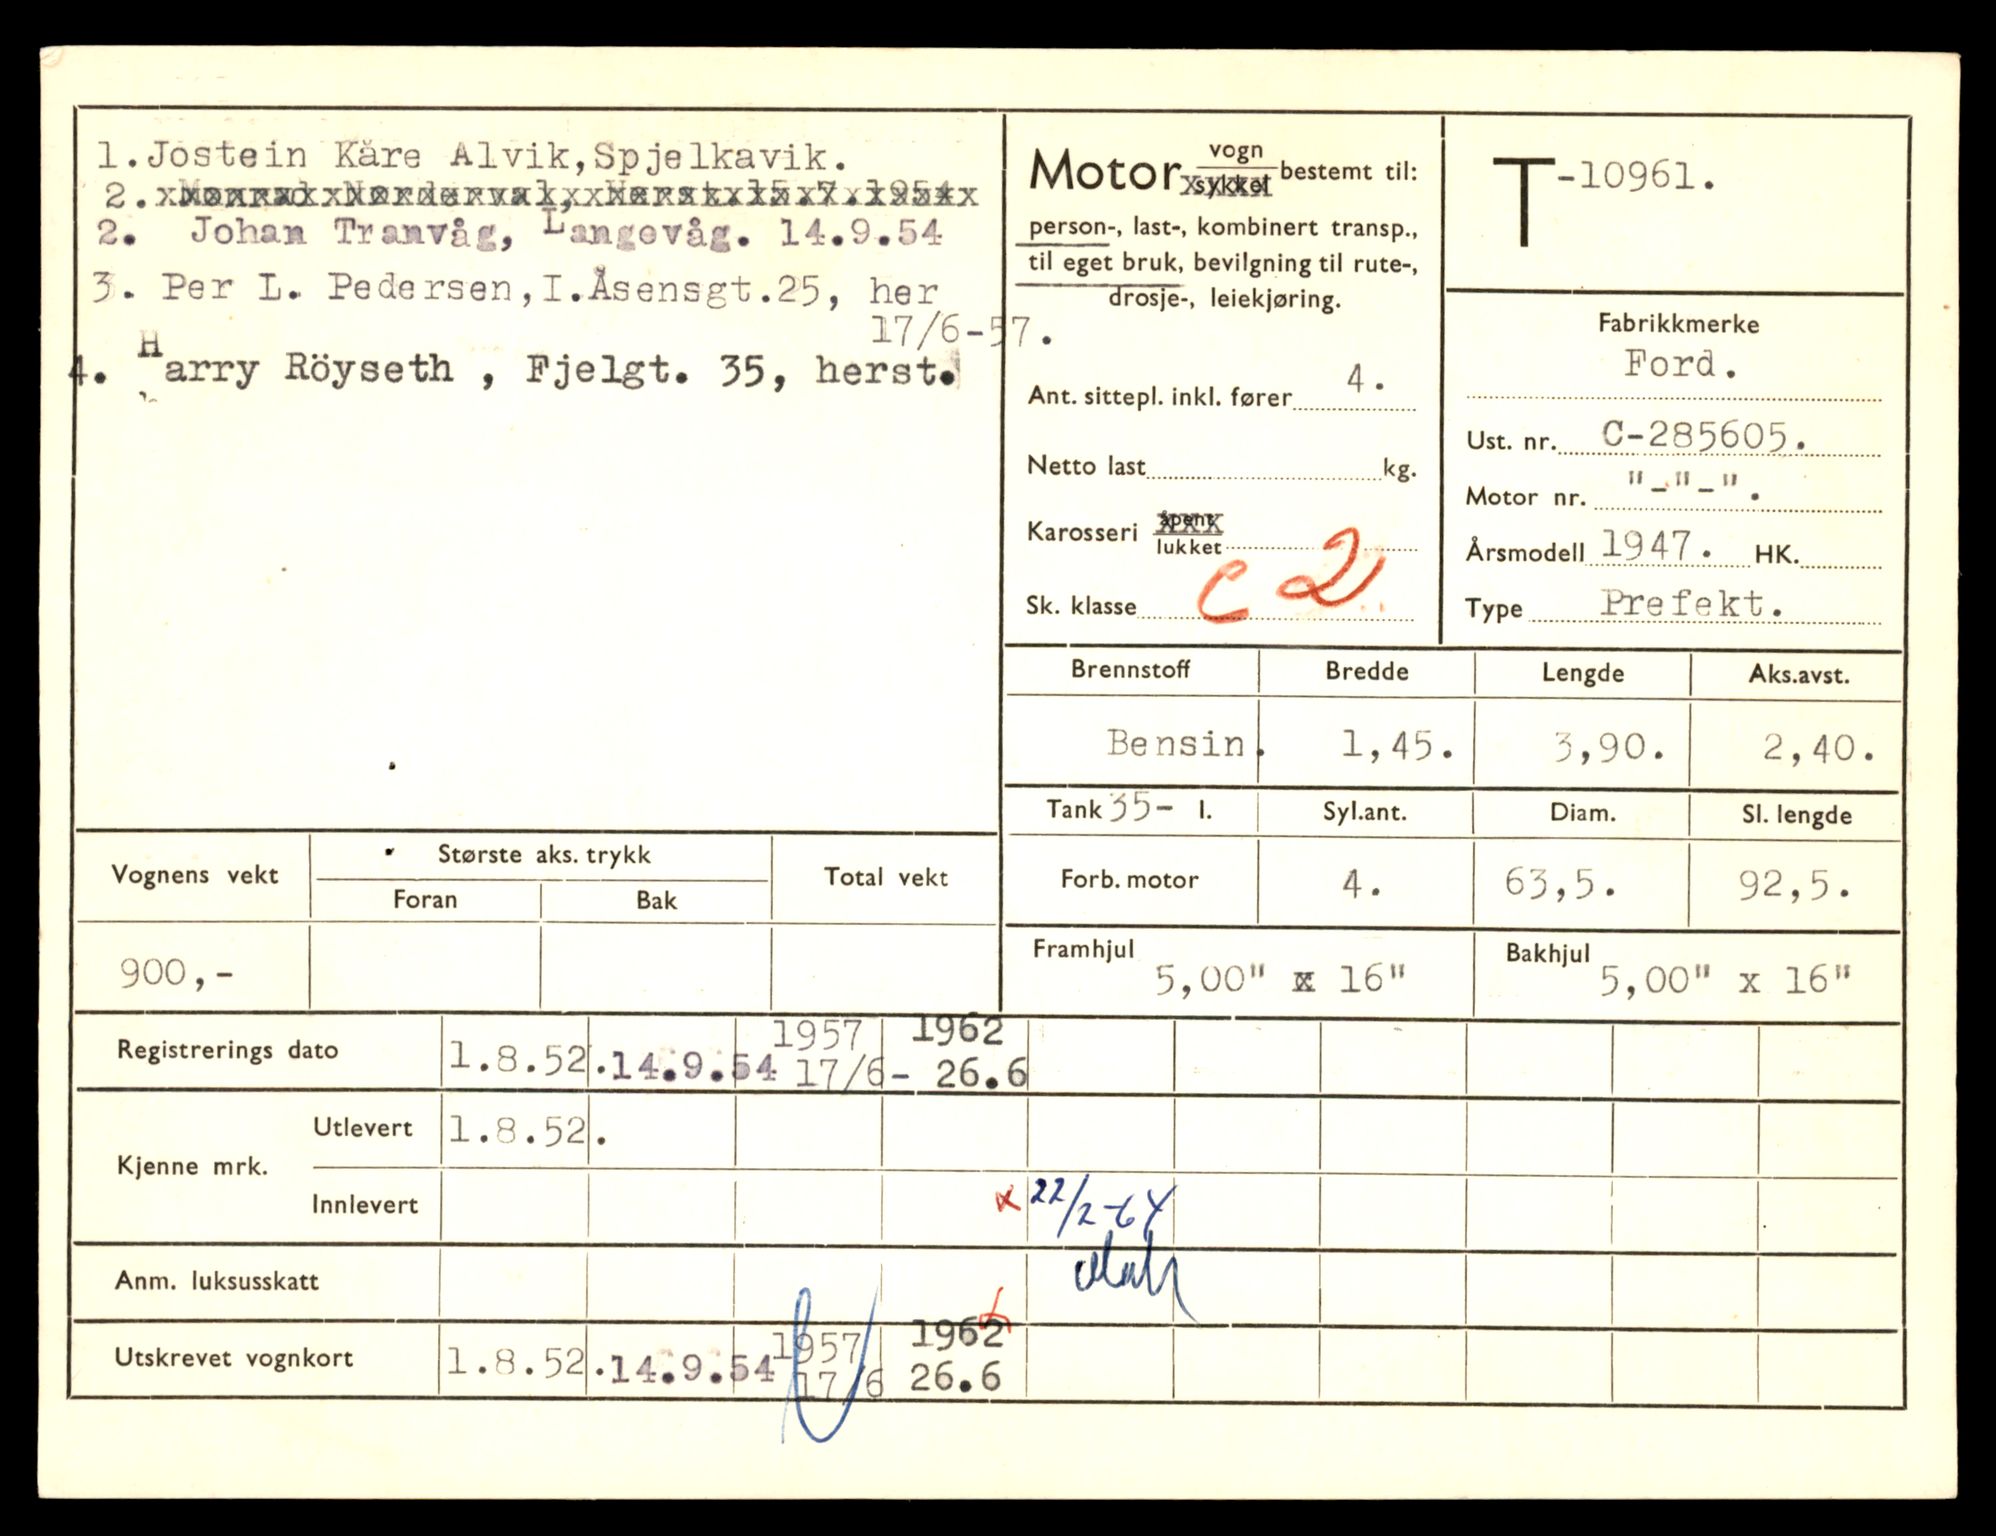 1.Jostein Kåre Alvik,Spjelkavik.
2.
2. Johan Tranvåg, Langevåg. 14.9.54
3. Per L. Pedersen,I.Åsensgt.25, her
17/6-57.
4. Harry Röyseth , Fjelgt. 35, herst.
Motor vogn sykkel bestemt til:
person-, last-, kombinert transp.,
til eget bruk, bevilgning til rute-,
drosje-, leiekjøring.
Ant. sittepl. inkl. fører 4.
Netto last kg.
Karosseri åpent lukket
Sk. klasse C 2
T-10961.
Fabrikkmerke
Ford.
Ust. nr. C-285605.
Motor nr. "-"-".
Årsmodell 1947. HK.
Type Prefekt.
Brennstoff Bredde Lengde Aks.avst.
Bensin. 1,45. 3,90. 2,40.
Tank 35- l. Syl.ant. Diam. Sl. lengde
Forb. motor 4. 63,5. 92,5.
Framhjul 5,00" x 16" Bakhjul 5,00" x 16"
Vognens vekt Største aks. trykk Total vekt
Foran Bak
900,-
1957 1962
Registrerings dato 1.8.52. 14.9.54 17/6- 26.6
Kjenne mrk. Utlevert 1.8.52.
Innlevert x 22/2-64
Anm. luksusskatt
1957 1962
Utskrevet vognkort 1.8.52. 14.9.54 17/6 26.6